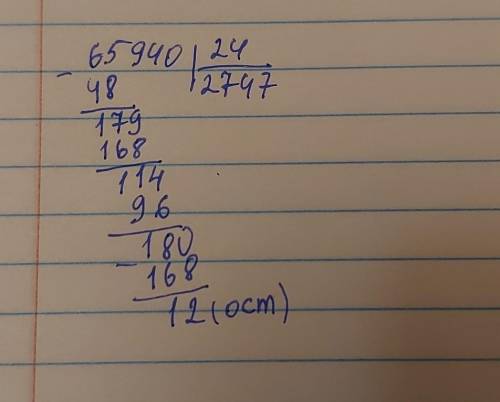 65940 24
- 48 2747
179
168
114
96
180
- 168
12 (ост)